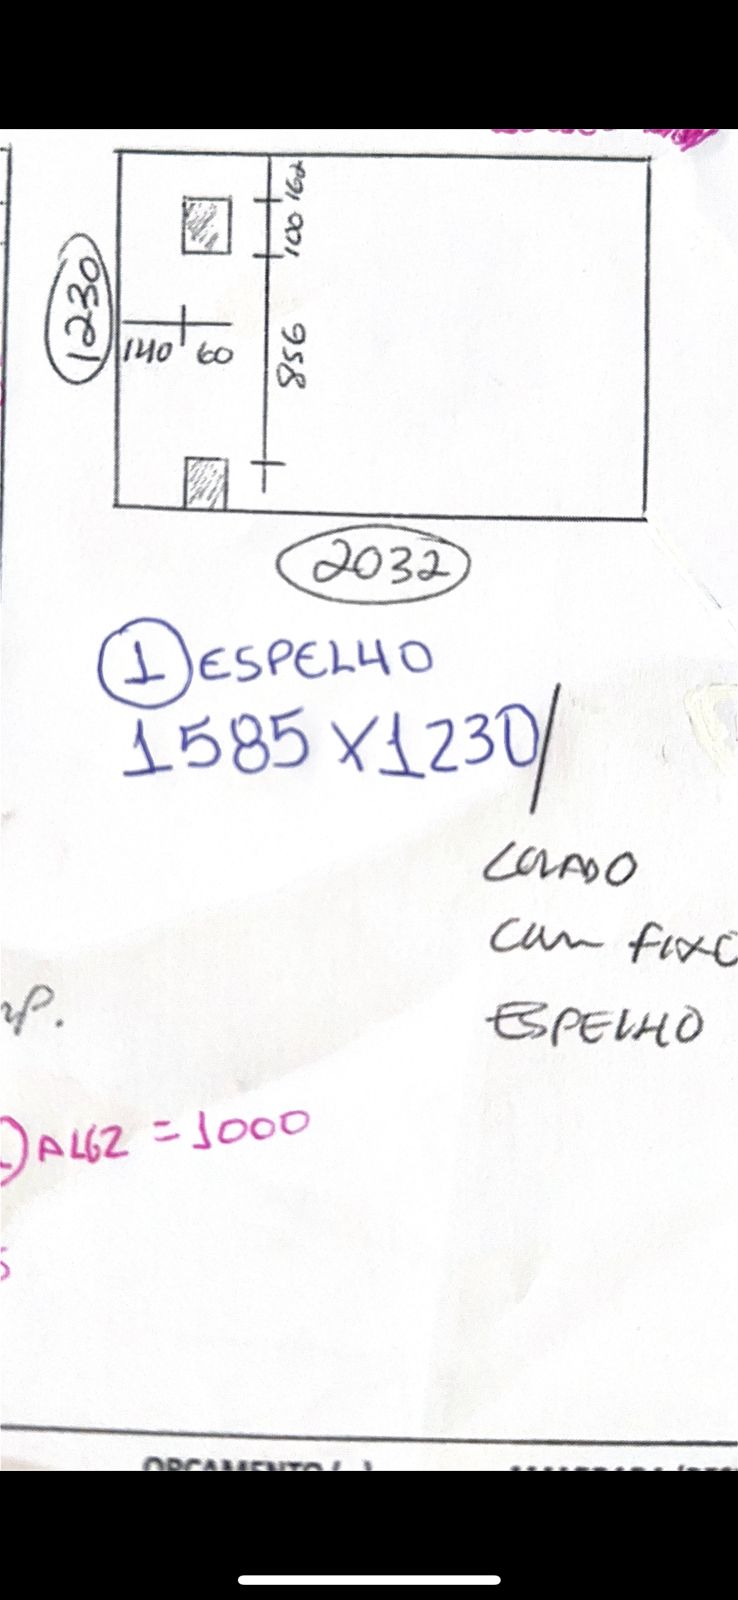 162
100
1230
856
140 60
2032
1 ESPELHO
1585 X 1230/
COLADO
COM FIXO
ESPELHO
ALGZ = 1000
ORÇAMENTO (